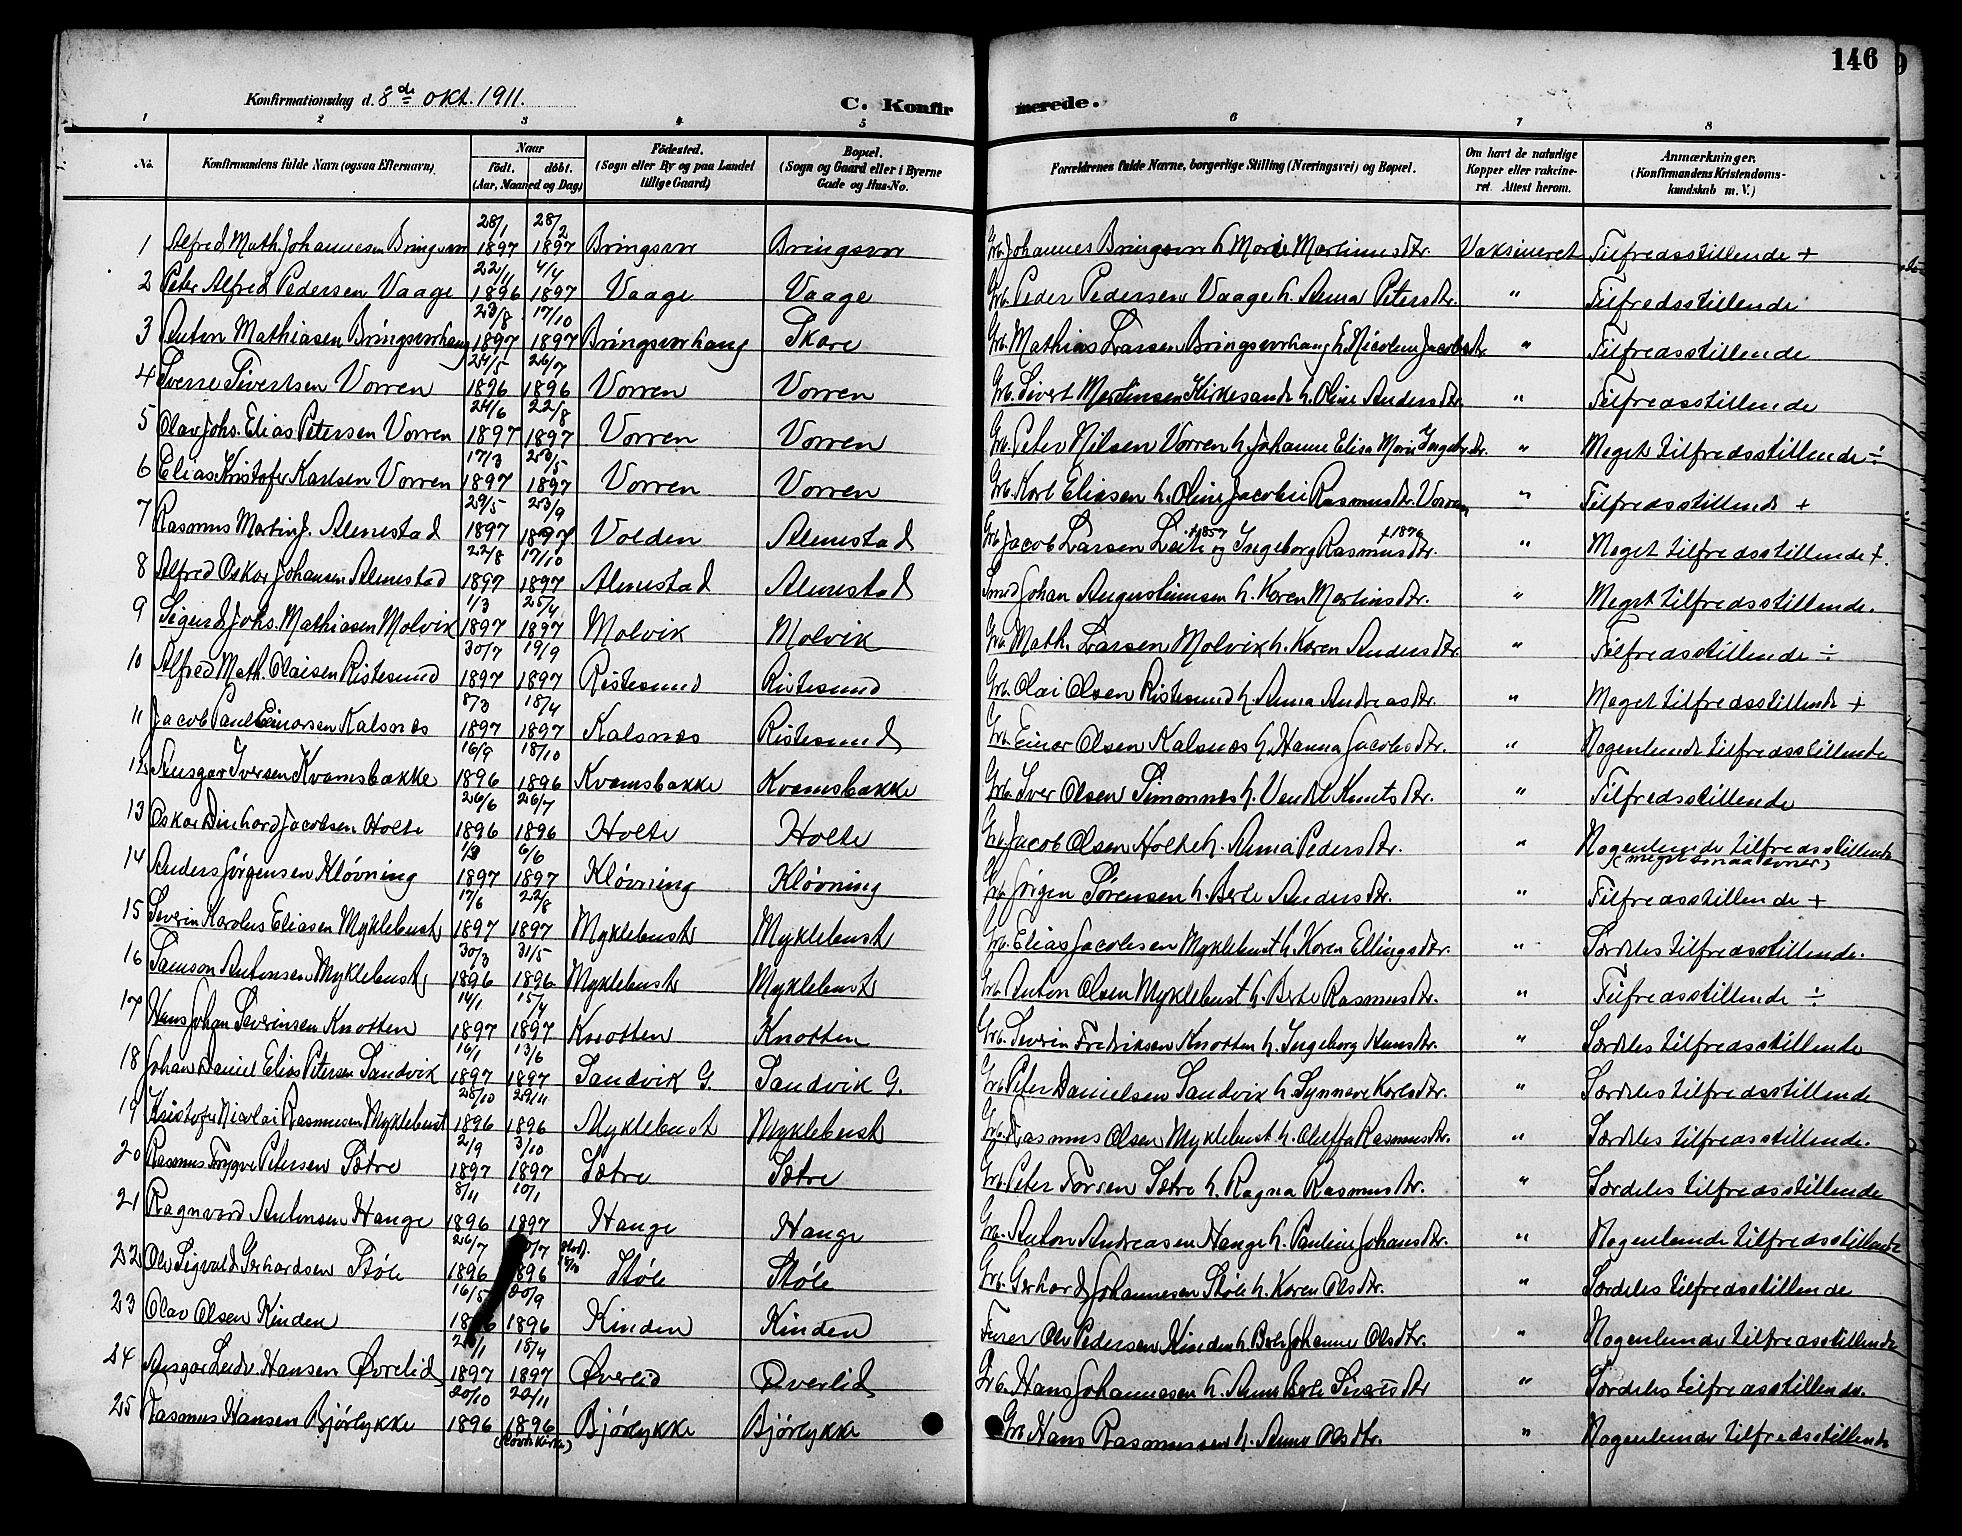 146
Konfirmationsdag d. 8de okt. 1911.
C. Konfirmerede.
1 2 3 4 5 6 7 8
No. Konfirmandens fulde Navn (ogsaa Efternavn). Naar født. døbt. (Aar, Maaned og Dag) Fødested. (Sogn eller By og paa Landet tillige Gaard) Bopæl. (Sogn og Gaard eller i Byerne Gade og Hus-No. Forældrenes fulde Navne, borgerlige Stilling (Næringsvei) og Bopæl. Om havt de naturlige Kopper eller vakcineret. Attest herom. Anmærkninger. (Konfirmandens Kristendomskundskab m. V.)
1 Alfred Math. Johannesen Bringsvor 28/1 1897 28/2 1897 Bringsvor Bringsvor Grb. Johannes Bringsvor h. Marie Martinusdtr. Vaksineret Tilfredsstillende +
2 Peter Alfred Pedersen Vaage 22/11 1896 4/4 1897 Vaage Vaage Grb. Peder Pedersen Vaage h. Anna Petersdtr. " Tilfredsstillende
3 Anton Mathiasen Bringsvorhaug 23/8 1897 17/10 1897 Bringsvorhaug Skare Grb. Mathias Larsen Bringsvorhaug h. Nicoline Jacobsdtr. " Tilfredsstillende
4 Sverre Sivertsen Vorren 24/5 1896 26/7 1896 Vorren Vorren Grb. Sivert Martinsen Kirkesande h. Oline Andersdtr. " Tilfredsstillende
5 Olav Johs. Elias Petersen Vorren 24/6 1897 22/8 1897 Vorren Vorren Grb. Peter Nilsen Vorren h. Johanne Elisa Marie Ingebr.dtr. " Meget tilfredsstillende ÷
6 Elias Kristofer Karlsen Vorren 17/3 1897 23/5 1897 Vorren Vorren Grb. Karl Eliasen h. Oline Jacobie Rasmusdtr. Vorren " Tilfredsstillende +
7 Rasmus Martin J. Almestad 29/5 1897 23/9 1897 Volden Almestad Grb. Jacob Larsen Leite *1857 og Ingeborg Rasmusdtr. " Meget tilfredsstillende +.
8 Alfred Oskar Johansen Almestad 22/8 1897 17/10 1897 Almestad Almestad Smed Johan Augustinusen h. Karen Martinsdtr. " Meget tilfredsstillende.
9 Sigurd Johs. Mathiasen Molvik 1/3 1897 25/4 1897 Molvik Molvik Grb. Math. Larsen Molvik h. Karen Andersdtr. " Tilfredsstillende ÷
10 Alfred Math. Olaisen Ristesund 30/7 1897 19/9 1897 Ristesund Ristesund Grb. Olai Olsen Ristesund h. Anna Andreasdtr. " Meget tilfredsstillende +
11 Jacob Paul Einarsen Kalsnæs 8/3 1897 18/4 1897 Kalsnæs Ristesund Grb. Einar Olsen Kalsnæs h. Hanna Jacobsdtr. " Nogenlunde tilfredsstillende
12 Ansgar Iversen Kvamsbakke 16/9 1896 18/10 1896 Kvamsbakke Kvamsbakke Grb. Iver Olsen Simonnes h. Vendel Knutsdtr. " Tilfredsstillende
13 Oskar Dinhard Jacobsen Holte 26/6 1896 26/7 1896 Holte Holte Grb. Jacob Olsen Holte h. Anna Pedersdtr. " Nogenlunde tilfredsstillende (meget smaa evner)
14 Anders Jørgensen Kløvning 1/3 1897 6/6 1897 Kløvning Kløvning Grb. Jørgen Sørensen h. Berte Andersdtr. " Tilfredsstillende +
15 Severin Karolus Eliasen Myklebust 17/6 1897 22/8 1897 Myklebust Myklebust Grb. Elias Jacobsen Myklebust h. Karen Ellingsdtr. " Særdeles tilfredsstillende.
16 Samson Antonsen Myklebust 30/3 1896 31/5 1896 Myklebust Myklebust Grb. Anton Olsen Myklebust h. Berte Rasmusdtr. " Tilfredsstillende ÷
17 Hans Johan Severinsen Knotten 14/1 1897 15/4 1897 Knotten Knotten Grb. Severin Fredriksen Knotten h. Ingeborg Hansdtr. " Særdeles tilfredsstillende
18 Johan Daniel Elias Petersen Sandvik 16/1 1897 13/6 1897 Sandvik G. Sandvik G. Grb. Peter Danielsen Sandvik h. Synneve Karlsdtr. " Særdeles tilfredsstillende
19 Kristofer Nicolai Rasmusen Myklebust 25/10 1896 29/11 1896 Myklebust Myklebust Grb. Rasmus Olsen Myklebust h. Oleffa Rasmusdtr. " Særdeles tilfredsstillende.
20 Rasmus Trygve Petersen Sætre 2/9 1897 3/10 1897 Sætre Sætre Grb. Peter Torsen Sætre h. Ragna Rasmusdtr. " Særdeles tilfredsstillende
21 Ragnvard Antonsen Hauge 8/11 1896 10/1 1897 Hauge Hauge Grb. Anton Andreasen Hauge h. Pauline Johansdtr. " Nogenlunde tilfredsstillende
22 Ole Sigvald Gerhardsen Støle 26/7 1896 1896 Støle Støle Grb. Gerhard Johannesen Støle h. Karen Olsdtr. " Særdeles tilfredsstillende
23 Olav Olsen Kinden 16/5 1896 20/9 1896 Kinden Kinden Ole Pedersen Kinden h. Berte Johanne Olsdtr. " Nogenlunde tilfredsstillende
24 Ansgar Hansen Øvrelid 1897 18/4 1897 Øvrelid Øvrelid Grb. Hans Johannesen h. Anne Berte Sivertsdtr " Særdeles tilfredsstillende.
25 Rasmus Hansen Bjørlykke 20/10 1896 22/11 1896 (Rovde kirke) Bjørlykke Bjørlykke Grb. Hans Rasmussen h. Anne Olsdtr. " Nogenlunde tilfredsstillende